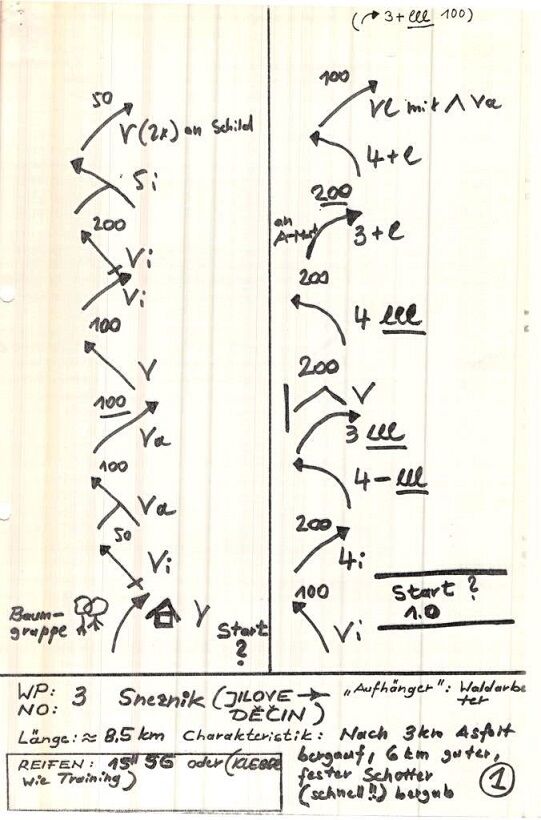 50
V (2x) an Schild
5i
200
Vi
Vi
100
V
100
Va
100
Va
50
Vi
Baum-
gruppe
V
Start
?
(3+lll 100)
100
Vl mit Λ Va
4+l
200
an
3+l
200
4 lll
200
V
3 lll
4-lll
200
4i
100
Start ?
1.0
Vi
WP: 3 Sneznik (JILOVE → "Aufhänger": Waldarbe
NO: DĚČIN) ter
Länge: ≈ 8,5 km Charakteristik: Nach 3km Asfalt
bergauf, 6 km guter,
REIFEN: 15" SG oder (KLEBER
fester Schotter
wie Training)
(schnell!!) bergab
1